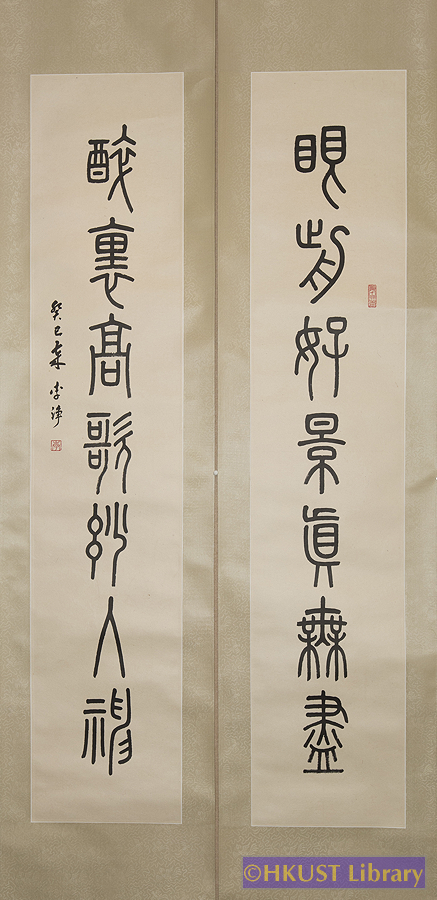 眼前好景真無盡
醉裏高歌妙入神
癸巳秊 李淨
©HKUST Library